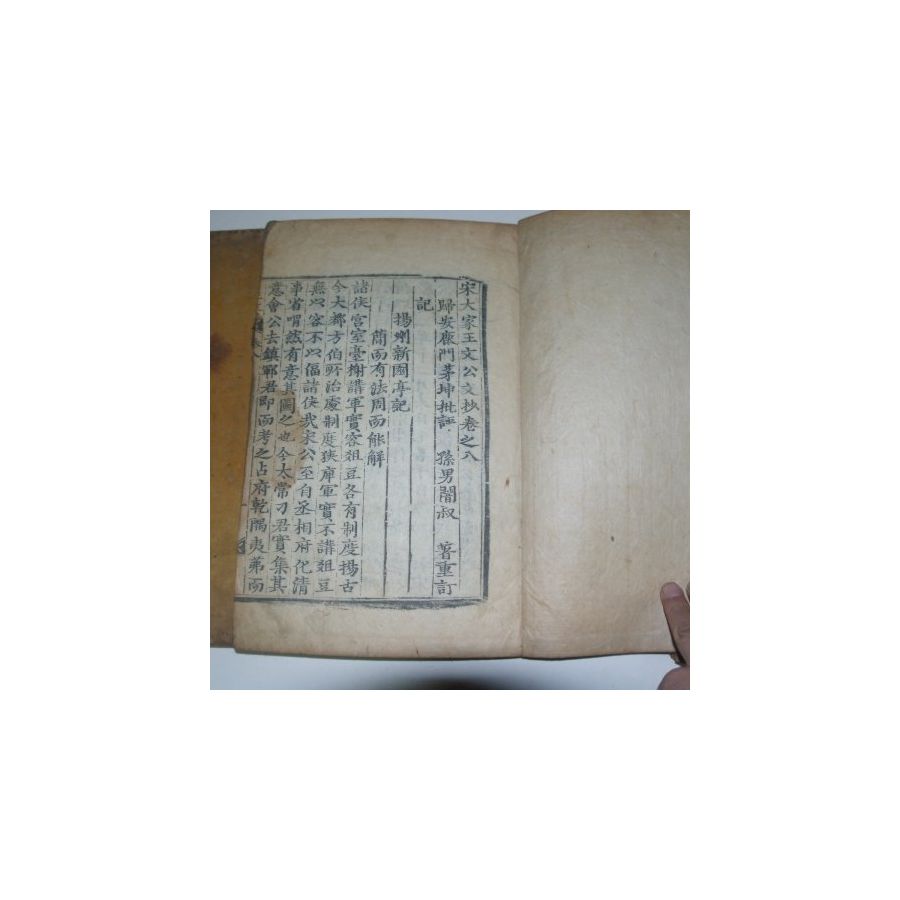 宋大家王文公文抄卷之八
歸安鹿門茅坤批評 孫男闇叔 著重訂
記
揚州新園亭記
簡而有法周而能解
諸侯宮室臺榭講軍實容俎豆各有制度揚古
今大都方伯所治處制度狹庳軍實不講俎豆
無以容不以偪諸侯哉宋公至自丞相府化清
事省喟然有意其圖之也今太常刁君實集其
意會公去鎮鄆君即而考之占府乾隅夷茀而